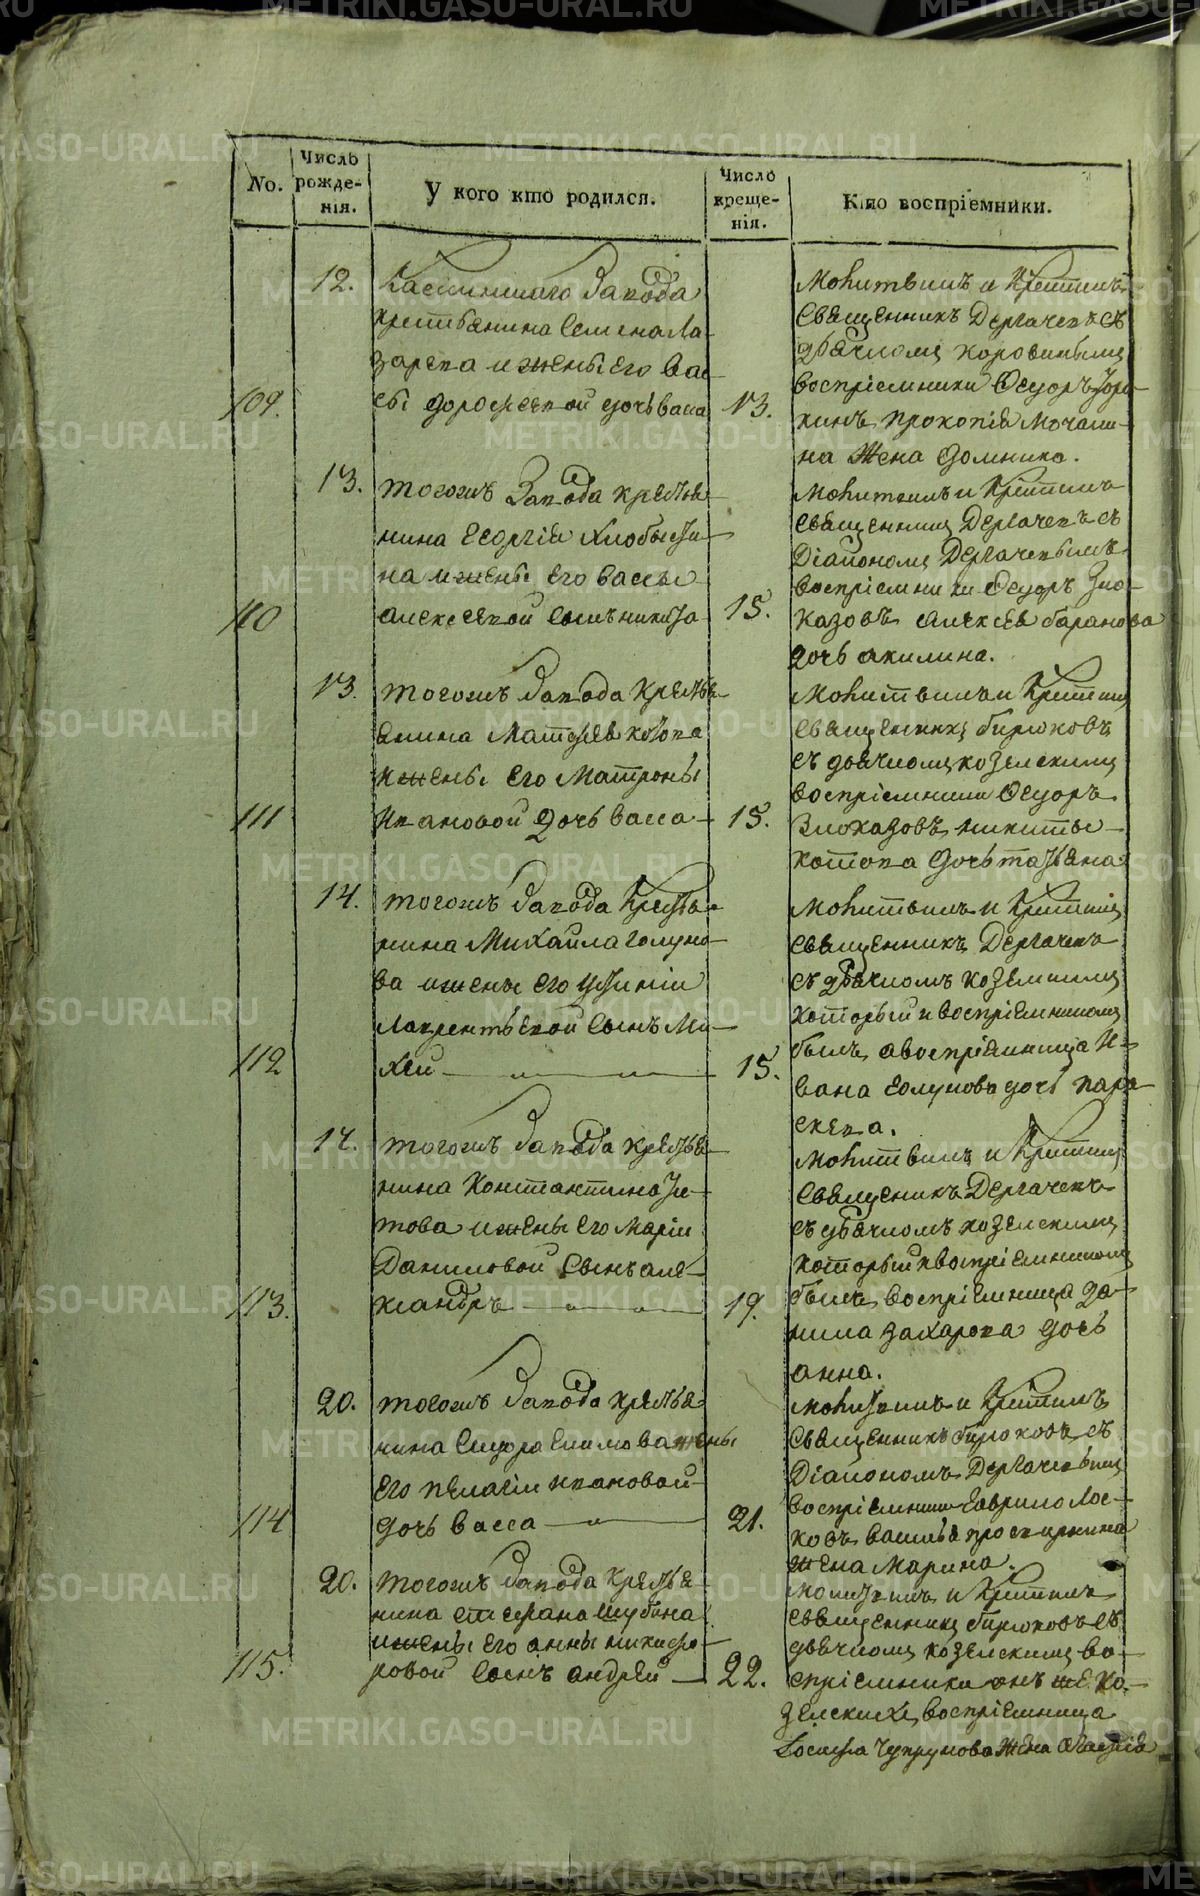 No.
Числъ рожде- нія.
У кого кто родился.
Число креще- нія.
Кто воспріемники.
12.
Каслинскаго завода
крестьянина Семена Ла-
зарева и жены его Вас-
сы Дорофеевой дочь Васса
109.
13.
Молитвилъ и крестилъ
Священникъ Дергачевъ съ
дьячкомъ Коровинымъ
воспріемники Ѳедоръ
кинъ Прокопія Мочали-
на жена Домника.
13.
тогожъ завода крестья-
нина Георгія Хлобысти-
на и жены его Вассы
Алексеевой сынъ Никита
110
15.
Молитвилъ и крестилъ
Священникъ Дергачевъ съ
Діакономъ Дергачевымъ
воспріемники Ѳедоръ Зло-
казовъ Алексея Баранова
дочь Акилина.
13.
тогожъ завода кресть-
янина Матфея Котова
и жены его Матроны
Ивановой дочь Васса
111
15.
Молитвилъ и крестилъ
Священникъ Бирюковъ
съ дьячкомъ Коземскимъ
воспріемники Ѳедоръ
Злоказовъ Никиты
Котова дочь Татьяна
14.
тогожъ завода крестья-
нина Михаила Голуно-
ва и жены его Устиніи
Лаврентьевой сынъ Ми-
хей
112
15.
Молитвилъ и крестилъ
Священникъ Дергачевъ
съ дьячкомъ Коземскимъ
который и воспріемникомъ
былъ, а воспріемница И-
вана Голунова дочь Пара-
скева.
14.
тогожъ завода крестья-
нина Константина Ти-
това и жены его Маріи
Даниловой сынъ Але-
ксандръ
113.
19.
Молитвилъ и крестилъ
Священникъ Дергачевъ
съ дьячкомъ Коземскимъ
который и воспріемникомъ
былъ, воспріемница Да-
нила Захарова дочь
Анна.
20.
тогожъ завода крестья
нина Сидора жены
его Пелагіи Ивановой
дочь Васса
114
21.
Молитвилъ и крестилъ
Священникъ Бирюковъ съ
Діакономъ Дергачевымъ
воспріемники Гаврило Лос-
ковъ Василья
жена Марина.
20.
тогожъ завода крестья-
нина Стефана Шубина
и жены его Анны Никифо-
ровой сынъ Андрей
115.
22.
Молитвилъ и крестилъ
Священникъ Бирюковъ съ
дьячкомъ Коземскимъ во-
спріемники онъ же Ко-
земскихъ, воспріемница
Чупрунова жена
METRIKI.GASO-URAL.RU